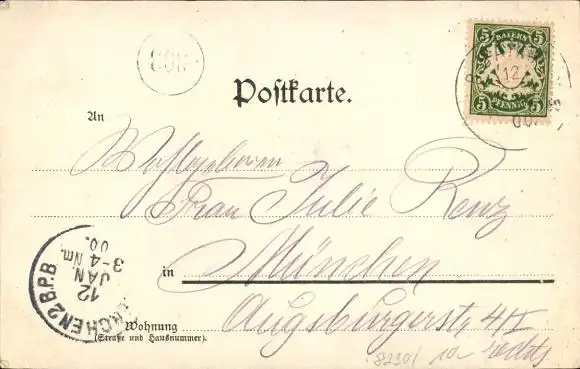 5 BAYERN 5
5 PFENNIG 5
12
00
808
Postkarte.
An
Wohlgeboren
Frau Julie Renz
in München
Augsburgerstr 4/I
rechts
Wohnung
(Straße und Hausnummer).
MÜNCHEN 2 B.P.B
12
JAN
3-4 Nm.
00.
8230/ 10